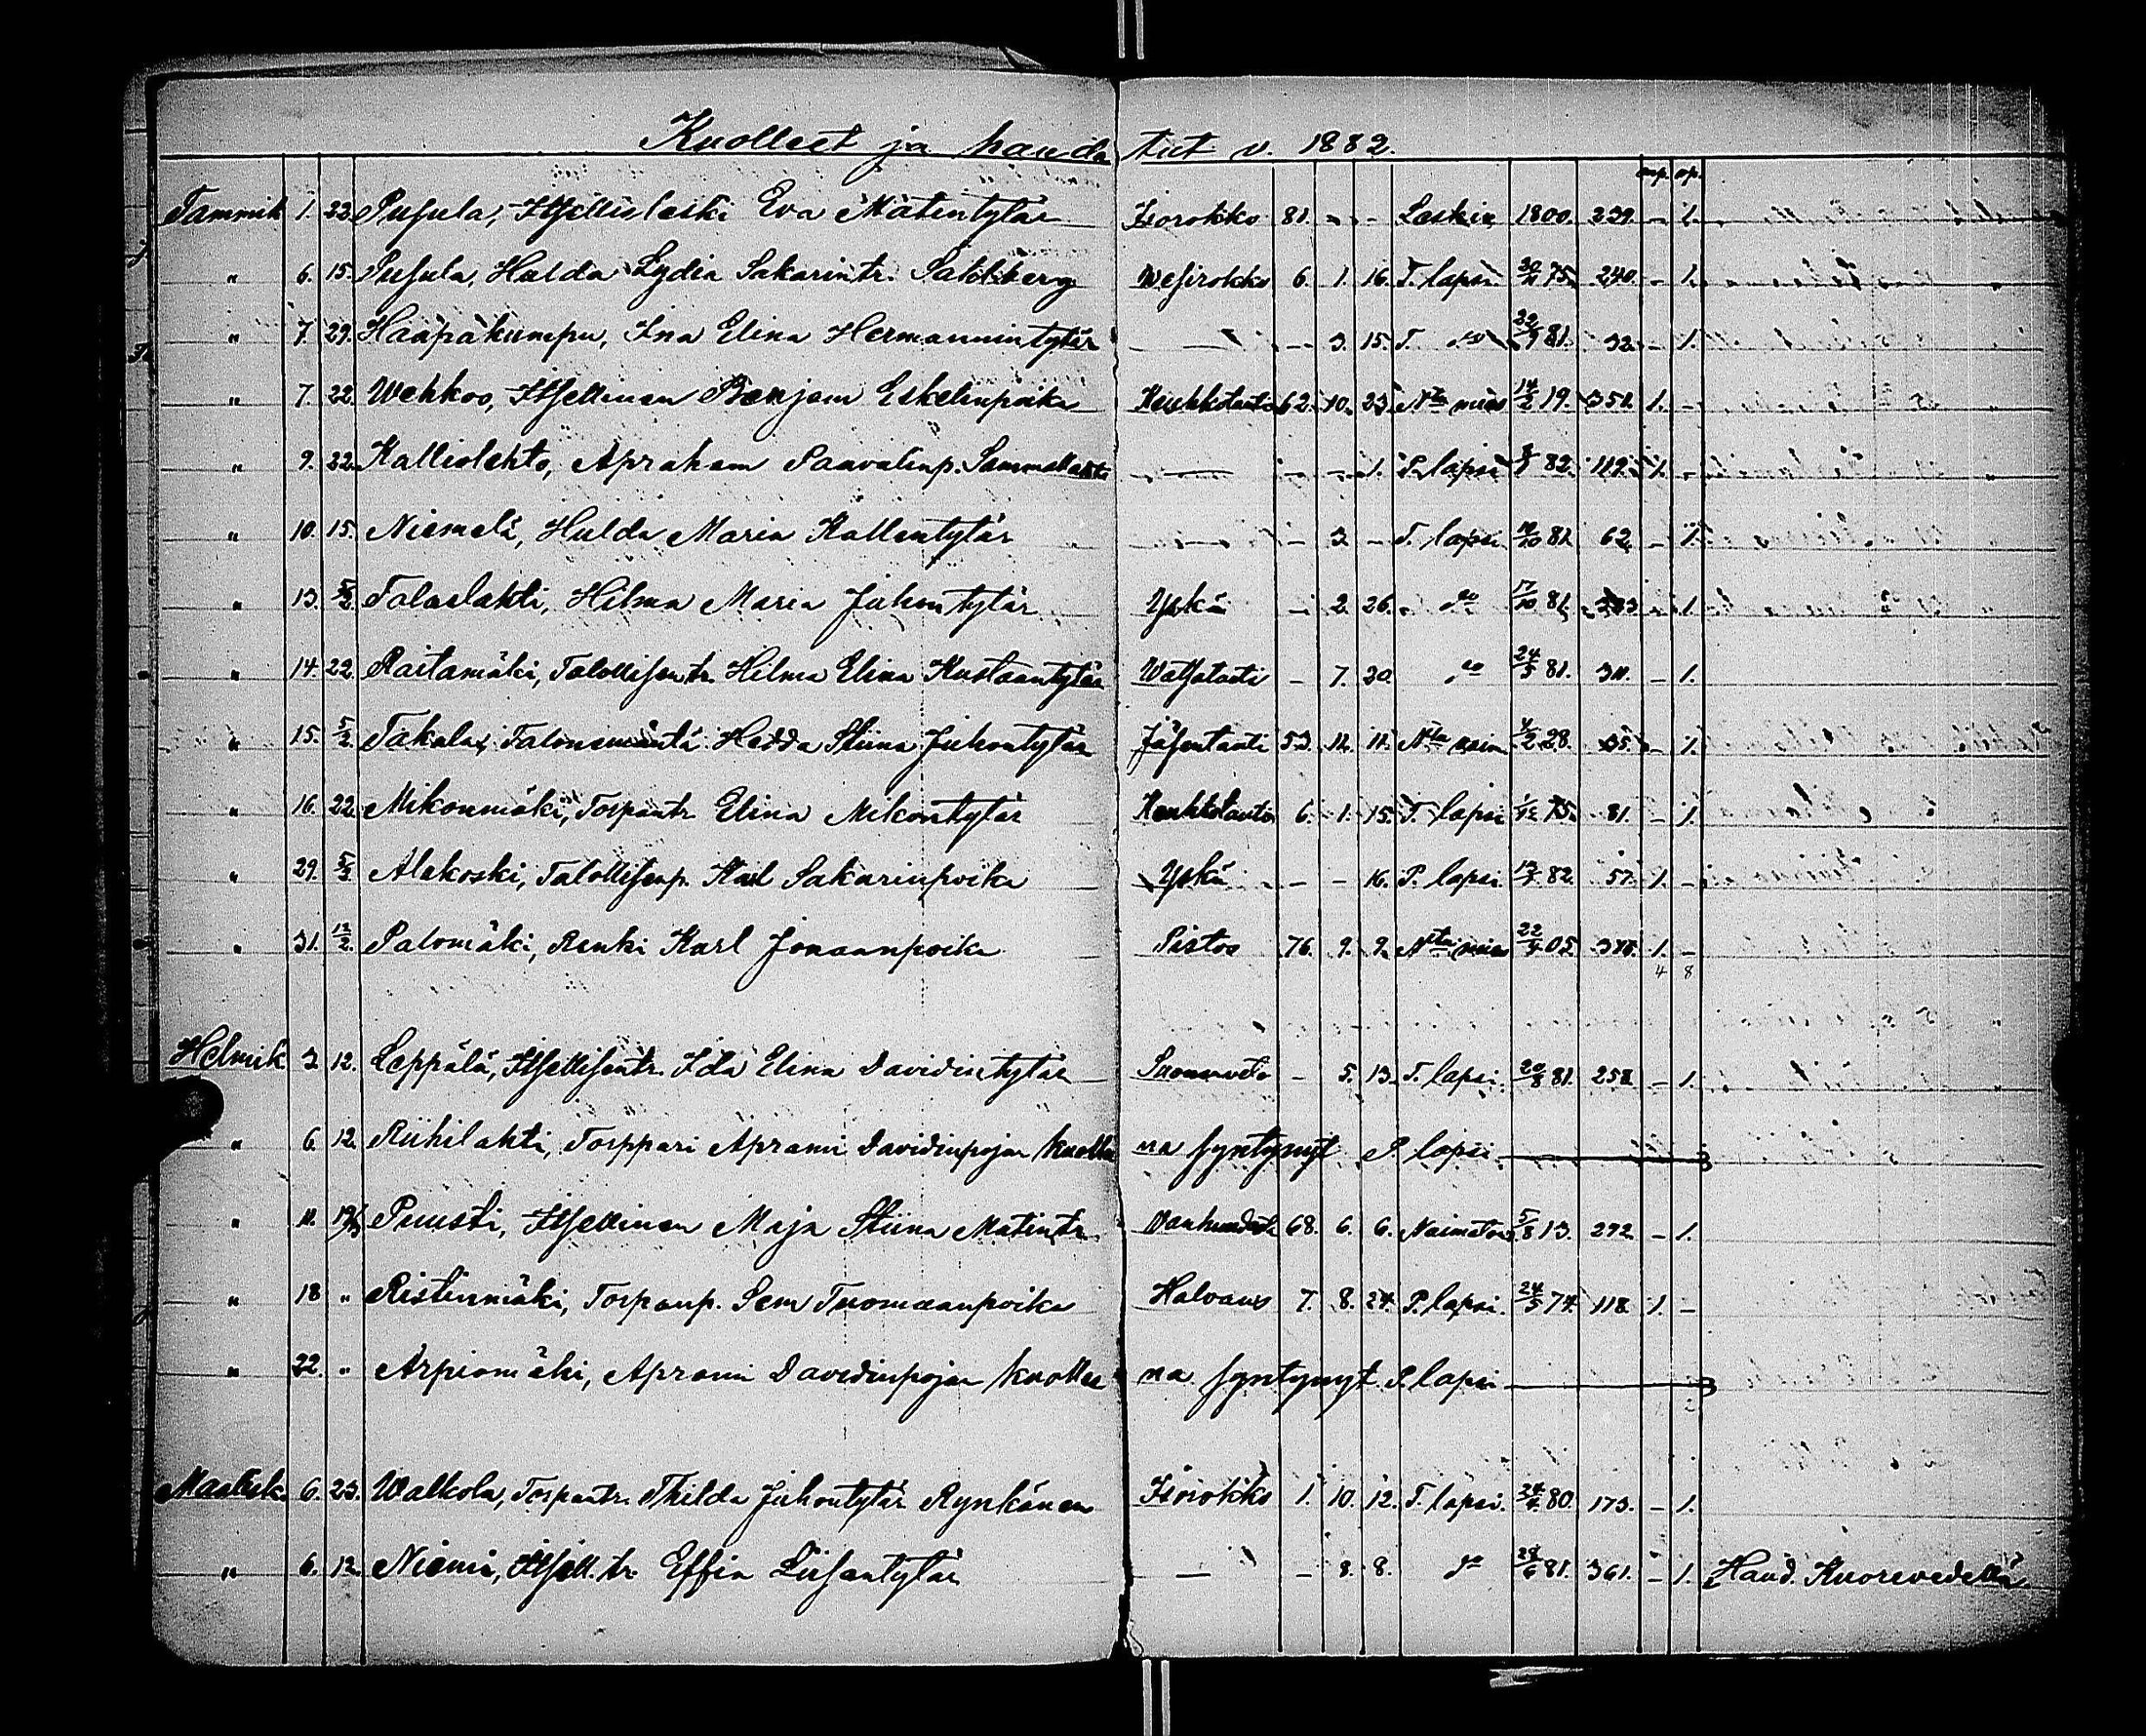 Kuolleet ja haudatut v. 1882.
mp. vp.
Tammik. 1. 22. Pusula, Itsellisleski Eva Matintytär Isorokko 81. - - Leskiv. 1800. 239. - 1.
" 6. 15. Pusula, Hulda Lydia Sakarintr. Wesirokko 6. 1. 16. T. lapsi 75. 240. - 1.
" 7. 29. Haapakumpu, Ina Elina Hermannintytär — - 3. 15. T. do 22/9 81. 32. - 1.
" 7. 22. Wehkoo, Itsellinen Benjam Eskelinpoika 62. 10. 23. Ntu mies 14/2 19. 351. 1. -
" 9. 22. Kalliolehto, Apraham Paavalinp. — - - 1. P. lapsi 8/1 82. 112. 1. -
" 10. 15. Niemelä, Hulda Maria Kallentytär — - 3 - T. lapsi 10/10 81. 62. - 1.
" 13. 5/2. Talaslahti, Hilma Maria Juhontytär Yskä - 2. 26. do 17/10 81. - 1.
" 14. 22. Raitamäki, Talollisentr. Hilma Elina Kustaantytär Watsatauti - 7. 20. do 24/5 81. 311. - 1.
" 15. 5/2. Takala, Talonemäntä Hedda Stiina Juhontytär 53. 11. 11. Ntu vaim. 4/2 28. 35. - 1.
" 16. 22. Mikonmäki, Torpantr. Elina Mikontytär 6. 1. 15. T. lapsi 1/12 75. 81. - 1.
" 29. 5/2. Alakoski, Talollisenp. Karl Sakarinpoika Yskä - - 16. P. lapsi 13/1 82. 57. 1. -
" 31. 12/2. Palomäki, Renki Karl Jonaanpoika Pistos 76. 9. 9. Ntu mies 22/4 05. 1. -
4 8
Helmik. 3. 12. Leppälä, Itsellisentr. Ida Elina Davidintytär - 5. 13. T. lapsi. 20/8 81. 258. - 1.
" 6. 12. Riihilahti, Torppari Aprami Davidinpojan kuollena syntynyt P. lapsi
" 11. Puusti, Itsellinen Maja Stiina Matintr. 68. 6. 6. Naimaton 5/8 13. 272. - 1.
" 18 " Ristinmäki, Torpanp. Sem Tuomaanpoika Halvaus 7. 8. 24. P. lapsi. 24/5 74. 118. 1. -
" 22. " Arpiomäki, Aprami Davidinpojan kuollena syntynyt P. lapsi
Maalisk. 6. 23. Walkola, Torpantr. Thilda Juhontytär Rynkänen Isorokko 1. 10. 12. T. lapsi. 24/4 80. 173. - 1.
" 6. 12. Niemi, Itsell. tr. Effia Liisantytär — - 8. 8. do 28/6 81. 361. - 1. Haud. Kuorevedellä